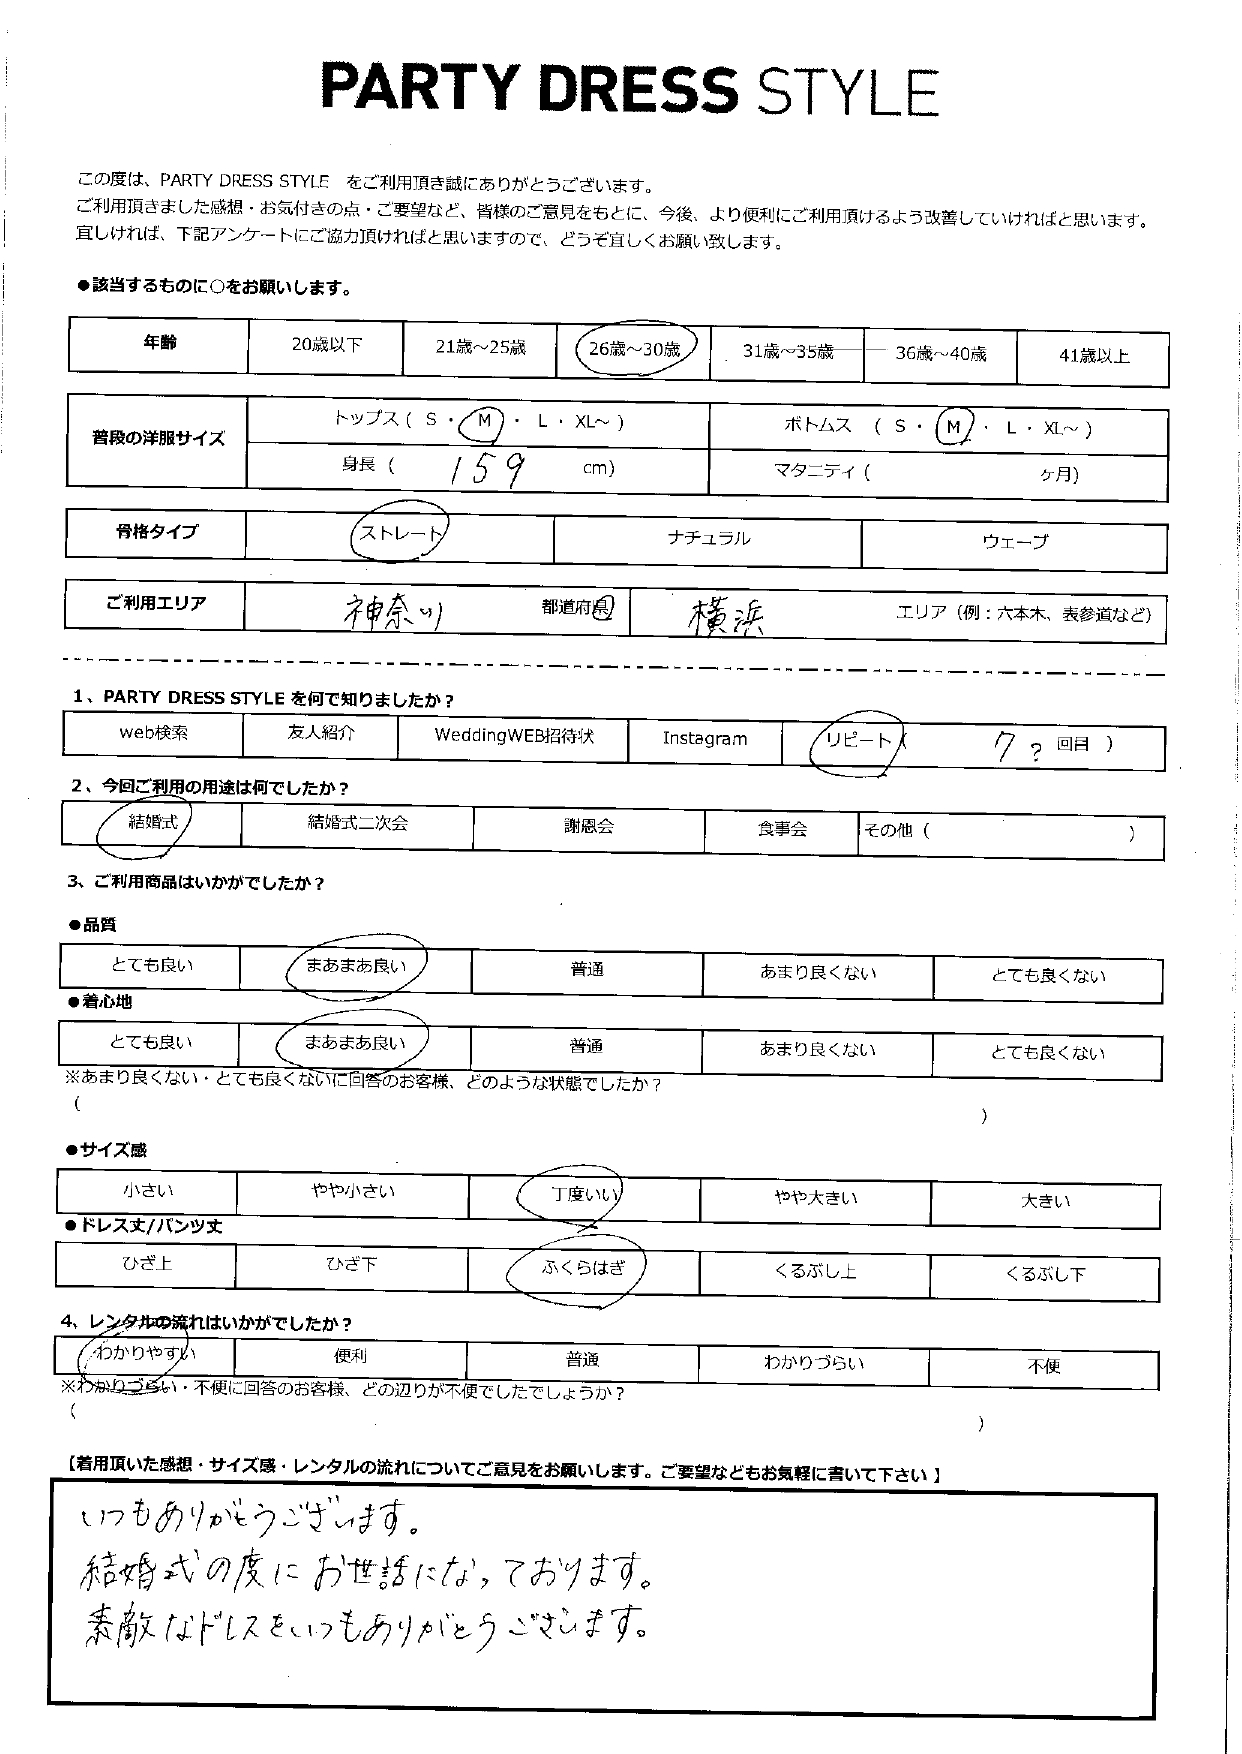 PARTY DRESS STYLE
この度は、PARTY DRESS STYLE をご利用頂き誠にありがとうございます。
ご利用頂きました感想・お気付きの点・ご要望など、皆様のご意見をもとに、今後、より便利にご利用頂けるよう改善していければと思います。
宜しければ、下記アンケートにご協力頂ければと思いますので、どうぞ宜しくお願い致します。
●該当するものに○をお願いします。
年齢 20歳以下 21歳～25歳 26歳～30歳 31歳～35歳 36歳～40歳 41歳以上
普段の洋服サイズ
トップス ( S ・ M ・ L ・ XL～ ) ボトムス ( S ・ M ・ L ・ XL～ )
身長 ( 159 cm) マタニティ ( ヶ月)
骨格タイプ ストレート ナチュラル ウェーブ
ご利用エリア 神奈川 都道府県 横浜 エリア（例：六本木、表参道など）
1、PARTY DRESS STYLE を何で知りましたか？
web検索 友人紹介 WeddingWEB招待状 Instagram リピート ( 7? 回目 )
2、今回ご利用の用途は何でしたか？
結婚式 結婚式二次会 謝恩会 食事会 その他 ( )
3、ご利用商品はいかがでしたか？
●品質
とても良い まあまあ良い 普通 あまり良くない とても良くない
●着心地
とても良い まあまあ良い 普通 あまり良くない とても良くない
※あまり良くない・とても良くないに回答のお客様、どのような状態でしたか？
( )
●サイズ感
小さい やや小さい 丁度いい やや大きい 大きい
●ドレス丈/パンツ丈
ひざ上 ひざ下 ふくらはぎ くるぶし上 くるぶし下
4、レンタルの流れはいかがでしたか？
わかりやすい 便利 普通 わかりづらい 不便
※わかりづらい・不便に回答のお客様、どの辺りが不便でしたでしょうか？
( )
【着用頂いた感想・サイズ感・レンタルの流れについてご意見をお願いします。ご要望などもお気軽に書いて下さい 】
いつもありがとうございます。
結婚式の度にお世話になっております。
素敵なドレスをいつもありがとうございます。